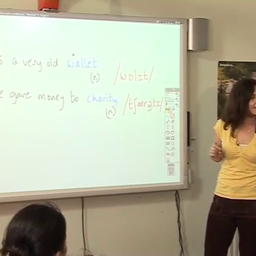 s a very old wallet
(n) /wɒlɪt/
e gave money to charity
(n) /tʃærəti/